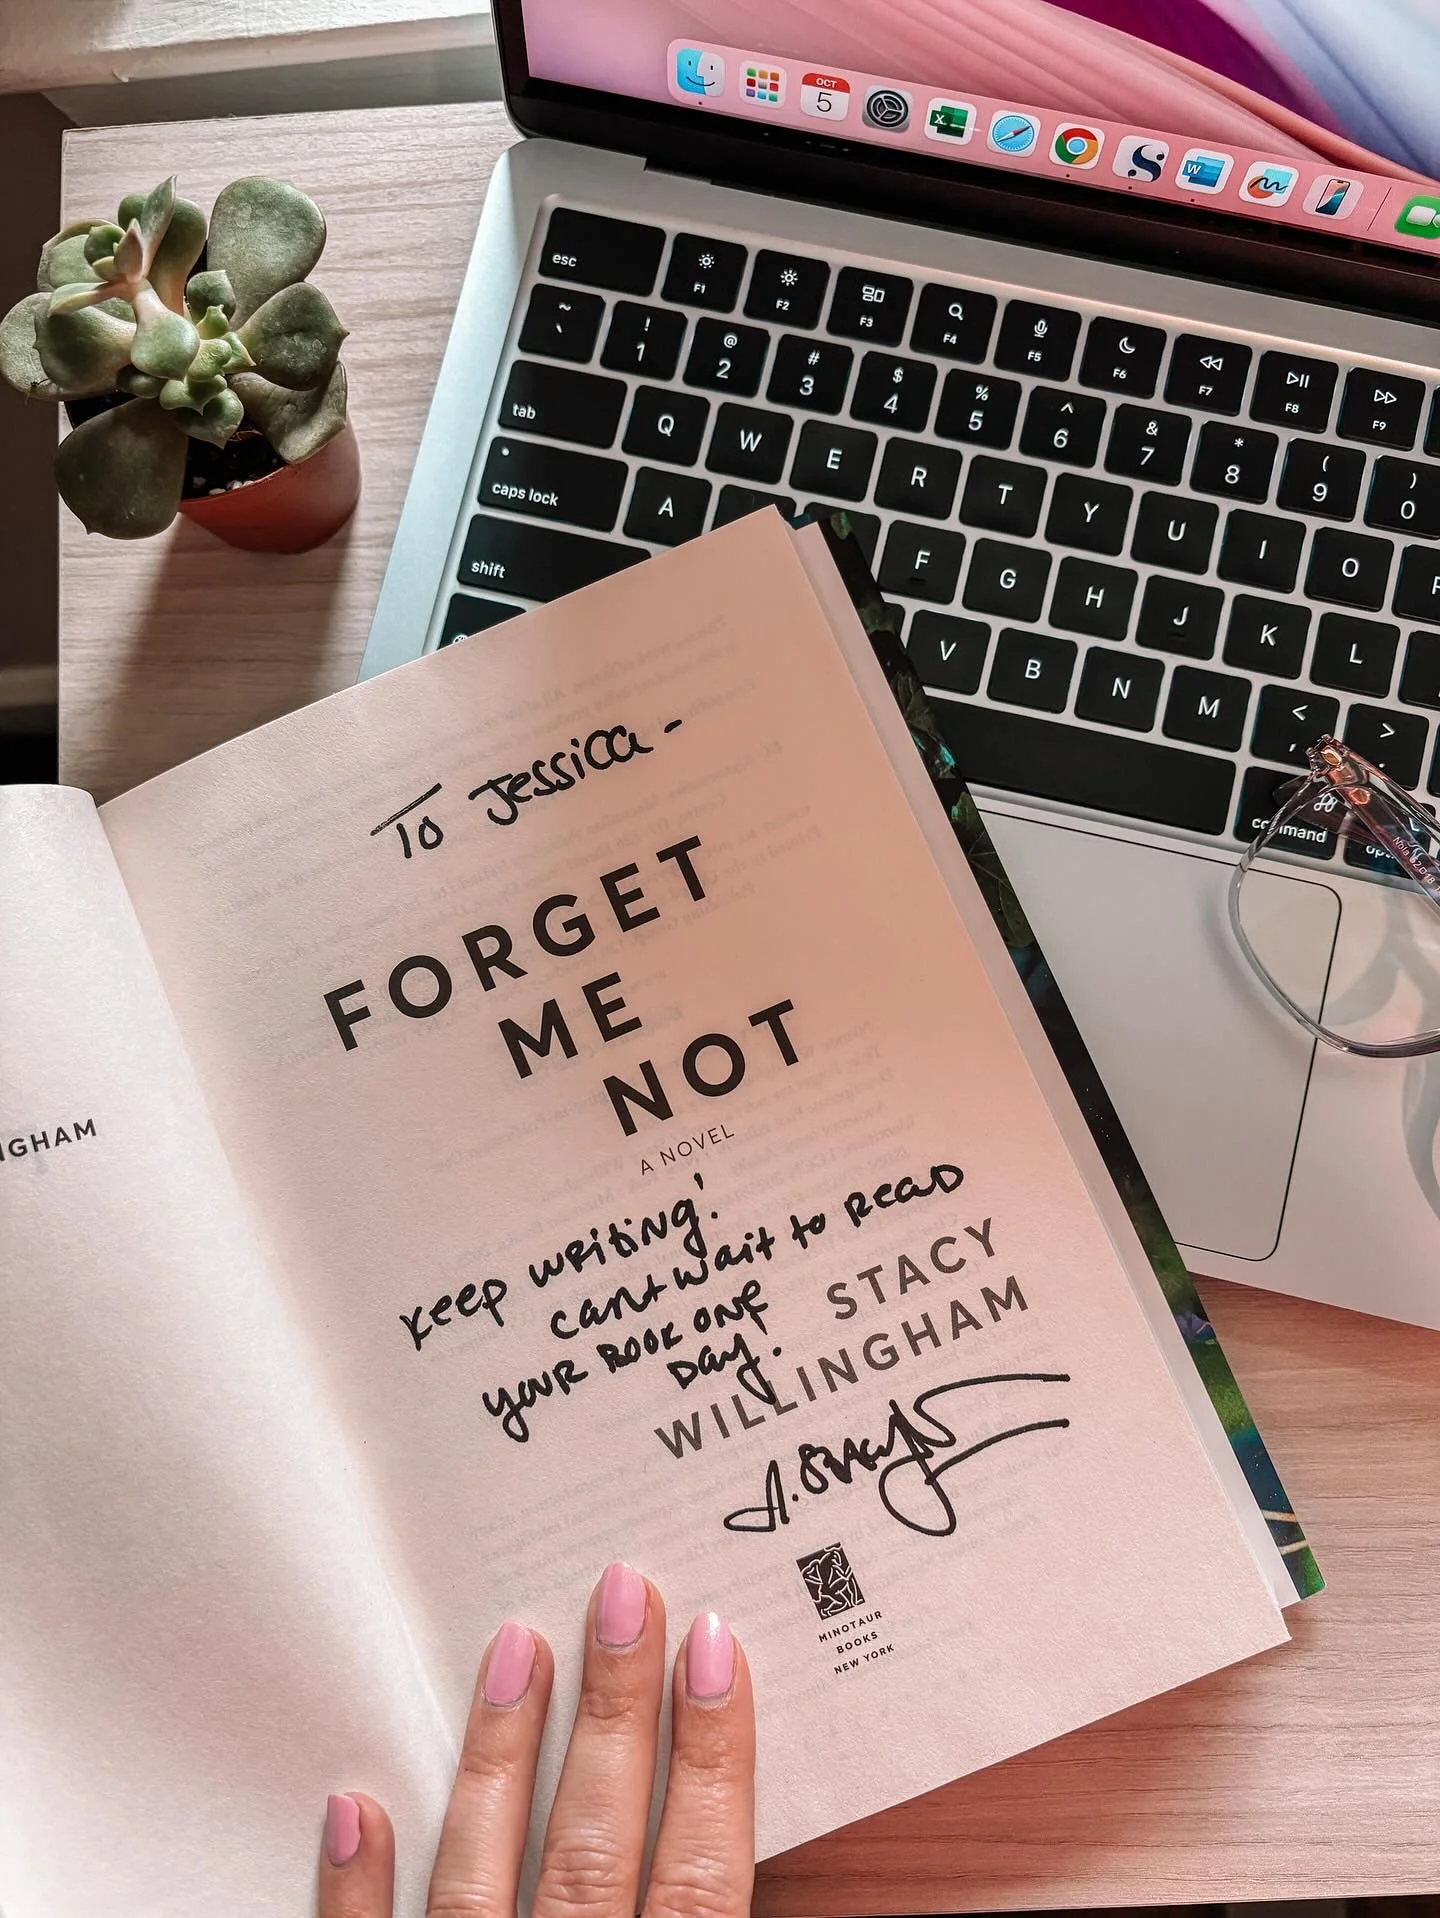 OCT
5
esc
F1
F2
F3
F4
F5
F6
F7
F8
F9
~ ! @ # $ % ^ & * ( )
` 1 2 3 4 5 6 7 8 9 0
tab Q W E R T Y U I O
caps lock A F G H J K L
shift V B N M < >
,
command
To Jessica -
FORGET
ME
NOT
A NOVEL
NGHAM
Keep writing!
can't wait to read
your book one
day!
STACY
WILLINGHAM
MINOTAUR
BOOKS
NEW YORK